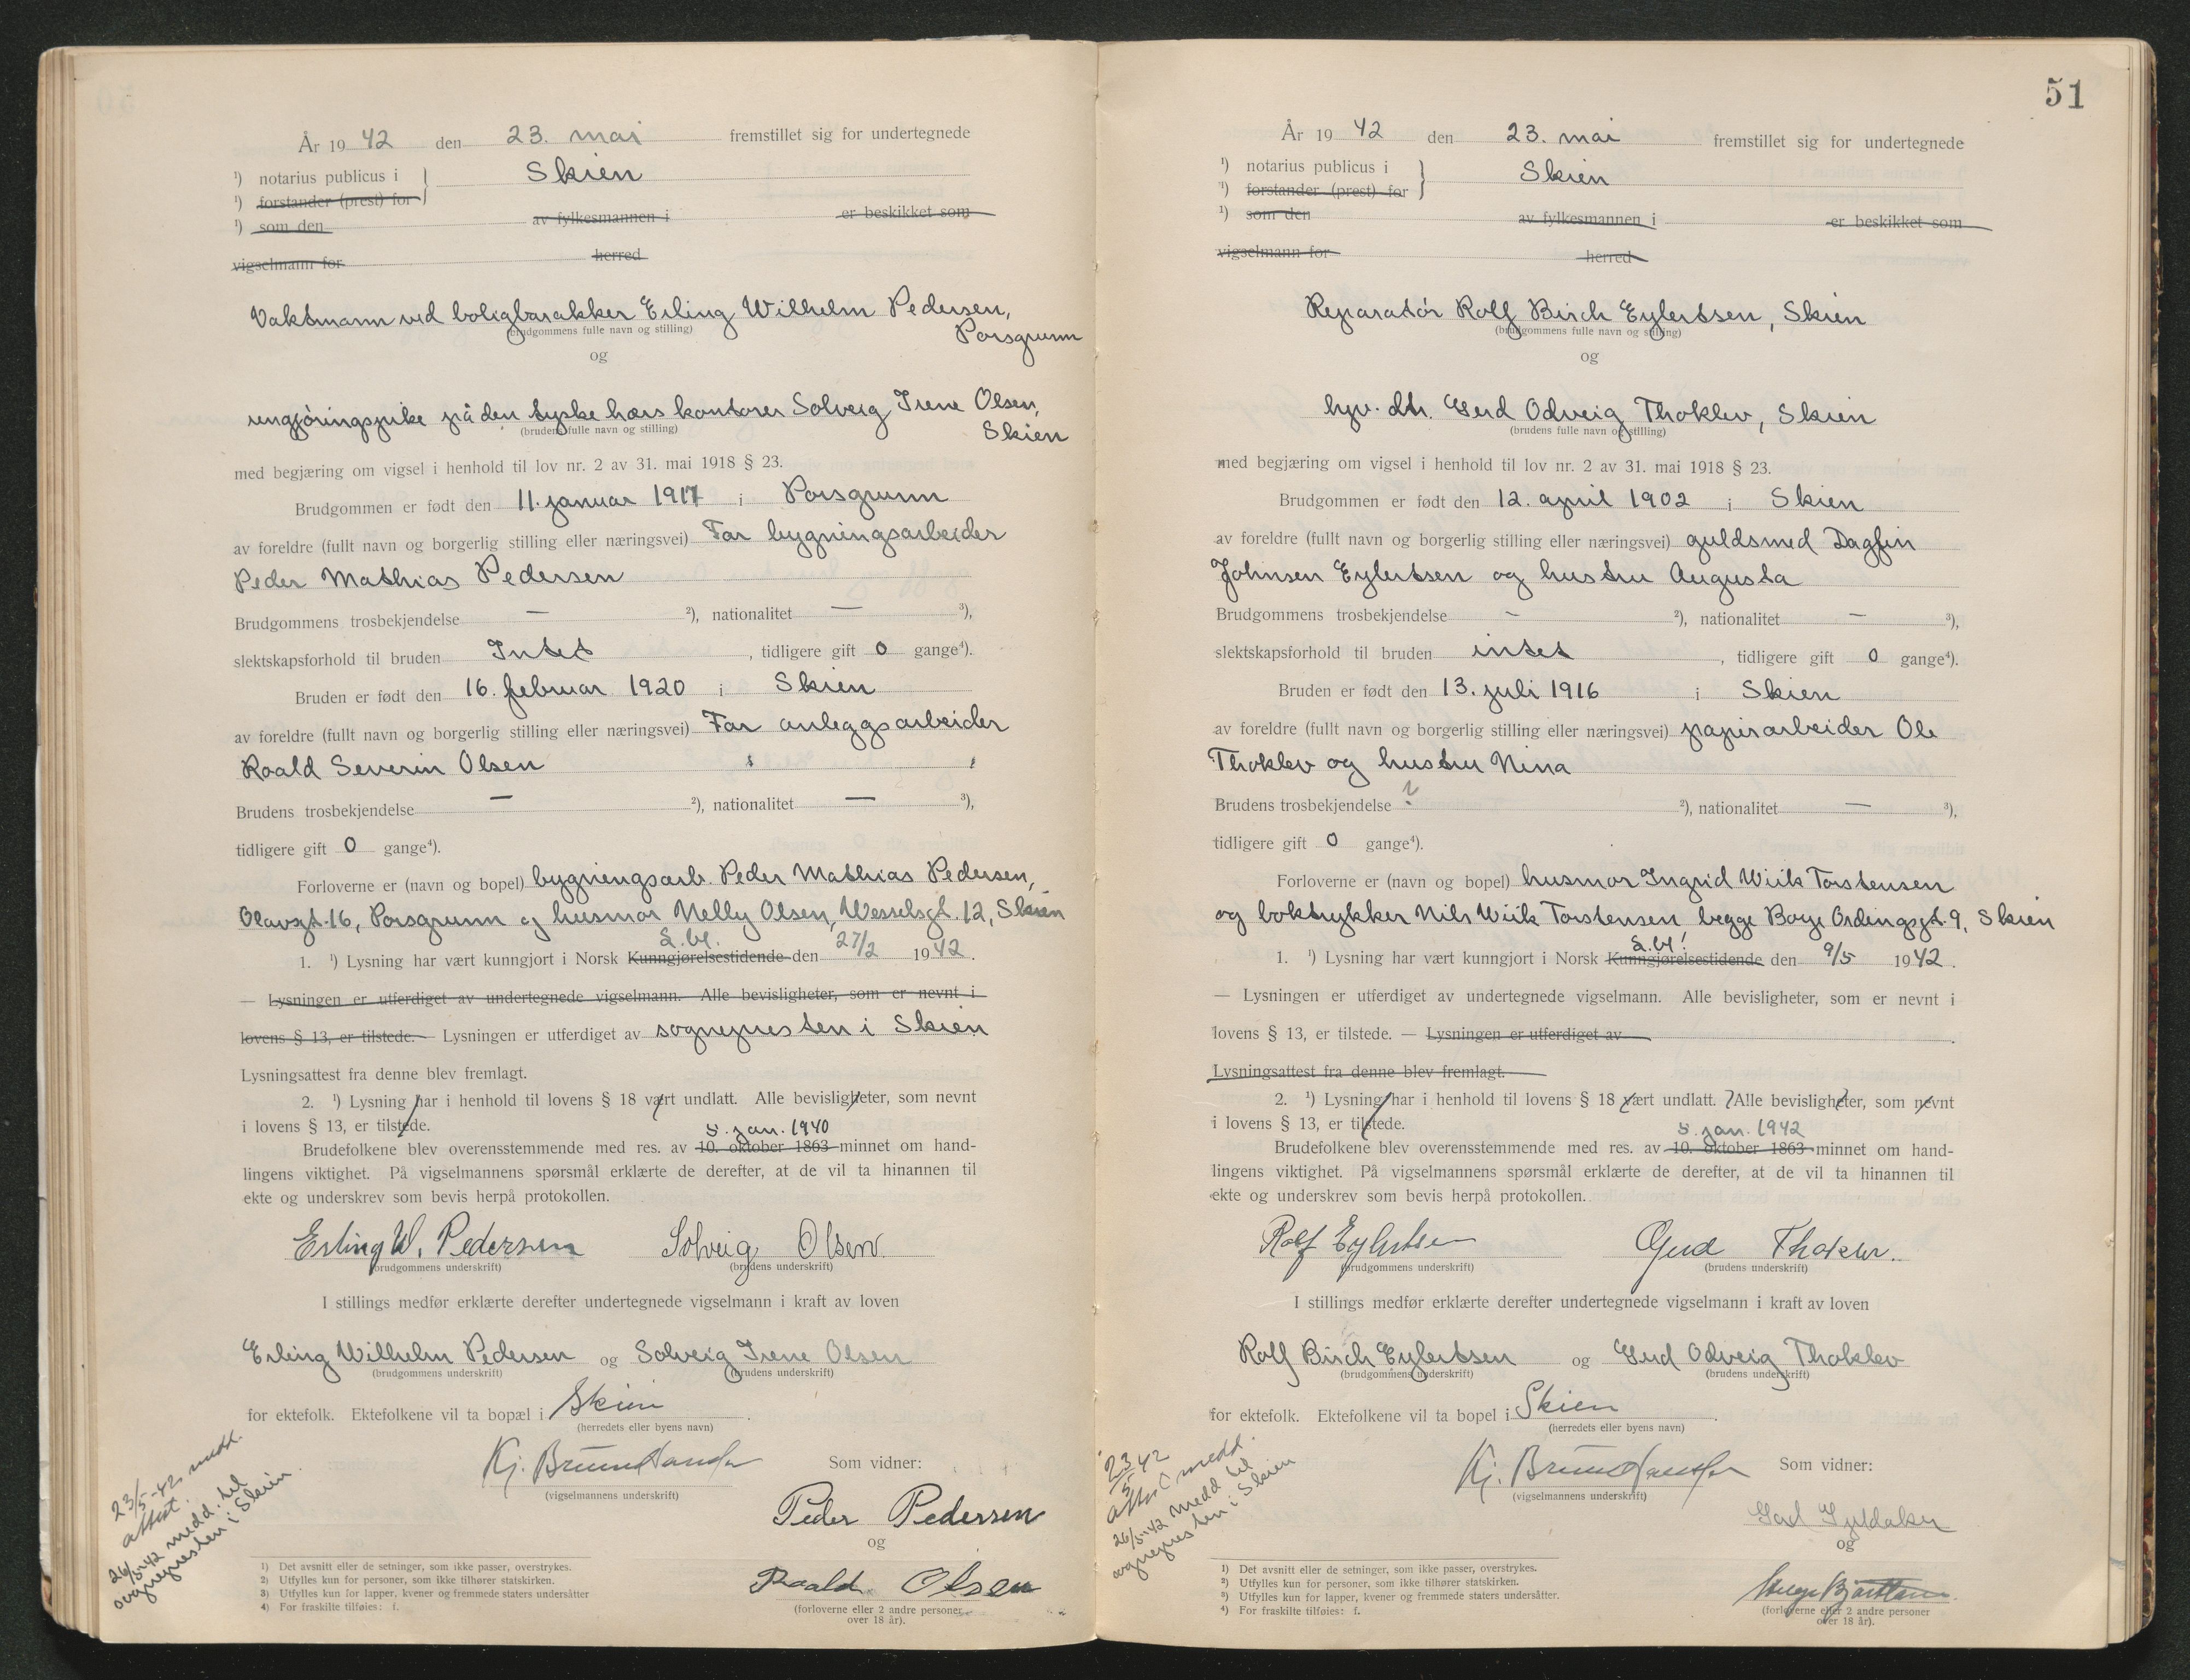 År 1942 den 23. mai fremstillet sig for undertegnede
¹) notarius publicus i } Skien
¹) forstander (prest) for
¹) som den av fylkesmannen i er beskikket som
vigselmann for herred
Vaktmann ved boligbarakker Erling Wilhelm Pedersen,
(brudgommens fulle navn og stilling)
Porsgrunn
og
rengjöringspike på den tyske hærs kontorer Solveig Irene Olsen,
(brudens fulle navn og stilling)
Skien
med begjæring om vigsel i henhold til lov nr. 2 av 31. mai 1918 § 23.
Brudgommen er født den 11. januar 1917 i Porsgrunn
av foreldre (fullt navn og borgerlig stilling eller næringsvei) Far bygningsarbeider
Peder Mathias Pedersen
Brudgommens trosbekjendelse — ²), nationalitet — ³),
slektskapsforhold til bruden Intet, tidligere gift 0 gange⁴).
Bruden er født den 16. februar 1920 i Skien
av foreldre (fullt navn og borgerlig stilling eller næringsvei) Far anleggsarbeider
Roald Severin Olsen
Brudens trosbekjendelse — ²), nationalitet — ³),
tidligere gift 0 gange⁴).
Forloverne er (navn og bopel) bygningsarb. Peder Mathias Pedersen,
Olavsgt. 16, Porsgrunn og husmor Nelly Olsen, Wesselsgt. 12, Skien
1. ¹) Lysning har vært kunngjort i Norsk Kunngjørelsestidende den 27/2 1942.
— Lysningen er utferdiget av undertegnede vigselmann. Alle bevisligheter, som er nevnt i
lovens § 13, er tilstede. — Lysningen er utferdiget av sognepresten i Skien
Lysningsattest fra denne blev fremlagt.
2. ¹) Lysning har i henhold til lovens § 18 vært undlatt. Alle bevisligheter, som nevnt
i lovens § 13, er tilstede.
5. jan. 1940
Brudefolkene blev overensstemmende med res. av 10. oktober 1863 minnet om hand-
lingens viktighet. På vigselmannens spørsmål erklærte de derefter, at de vil ta hinannen til
ekte og underskrev som bevis herpå protokollen.
Erling W. Pedersen Solveig Olsen.
(brudgommens underskrift) (brudens underskrift)
I stillings medfør erklærte derefter undertegnede vigselmann i kraft av loven
Erling Wilhelm Pedersen og Solveig Irene Olsen
(brudgommens underskrift) (brudens underskrift)
for ektefolk. Ektefolkene vil ta bopæl i Skien.
(herredets eller byens navn)
Kj.
(vigselmannens underskrift)
Som vidner:
Peder Pedersen
og
Roald Olsen
(forloverne eller 2 andre personer
over 18 år).
23/5-42 medd.
attest.
26/5-42 medd. til
sognepresten i Skien.
1) Det avsnitt eller de setninger, som ikke passer, overstrykes.
2) Utfylles kun for personer, som ikke tilhører statskirken.
3) Utfylles kun for lapper, kvener og fremmede staters undersåtter
4) For fraskilte tilføies: f.
51
År 1942 den 23. mai fremstillet sig for undertegnede
¹) notarius publicus i } Skien
¹) forstander (prest) for
¹) som den av fylkesmannen i er beskikket som
vigselmann for herred
Reparatör Rolf Birch Eylertsen, Skien
(brudgommens fulle navn og stilling)
og
hjv. dtr. Gerd Odveig Thoklev, Skien
(brudens fulle navn og stilling)
med begjæring om vigsel i henhold til lov nr. 2 av 31. mai 1918 § 23.
Brudgommen er født den 12. april 1902 i Skien
av foreldre (fullt navn og borgerlig stilling eller næringsvei) guldsmed Dagfin
Johnsen Eylertsen og hustru Augusta
Brudgommens trosbekjendelse — ²), nationalitet — ³),
slektskapsforhold til bruden intet, tidligere gift 0 gange⁴).
Bruden er født den 13. juli 1916 i Skien
av foreldre (fullt navn og borgerlig stilling eller næringsvei) papirarbeider Ole
Thoklev og hustru Nina
Brudens trosbekjendelse ? ²), nationalitet — ³),
tidligere gift 0 gange⁴).
Forloverne er (navn og bopel) husmor Ingrid Wiik Torstensen
og boktrykker Nils Wiik Torstensen begge Borge Ordingsgt. 9, Skien
1. ¹) Lysning har vært kunngjort i Norsk Kunngjørelsestidende den 9/5 1942.
— Lysningen er utferdiget av undertegnede vigselmann. Alle bevisligheter, som er nevnt i
lovens § 13, er tilstede. — Lysningen er utferdiget av
Lysningsattest fra denne blev fremlagt.
2. ¹) Lysning har i henhold til lovens § 18 vært undlatt. Alle bevisligheter, som nevnt
i lovens § 13, er tilstede.
5. jan. 1942
Brudefolkene blev overensstemmende med res. av 10. oktober 1863 minnet om hand-
lingens viktighet. På vigselmannens spørsmål erklærte de derefter, at de vil ta hinannen til
ekte og underskrev som bevis herpå protokollen.
Rolf Eylertsen Gerd Thoklev.
(brudgommens underskrift) (brudens underskrift)
I stillings medfør erklærte derefter undertegnede vigselmann i kraft av loven
Rolf Birch Eylertsen og Gerd Odveig Thoklev
(brudgommens underskrift) (brudens underskrift)
for ektefolk. Ektefolkene vil ta bopel i Skien.
(herredets eller byens navn)
Kj.
(vigselmannens underskrift)
Som vidner:
og
(forloverne eller 2 andre personer
over 18 år).
23/5 42
attest medd.
26/5-42 medd til
sognepresten i Skien
1) Det avsnitt eller de setninger, som ikke passer, overstrykes.
²) Utfylles kun for personer, som ikke tilhører statskirken.
³) Utfylles kun for lapper, kvener og fremmede staters undersåtter.
⁴) For fraskilte tilføies: f.